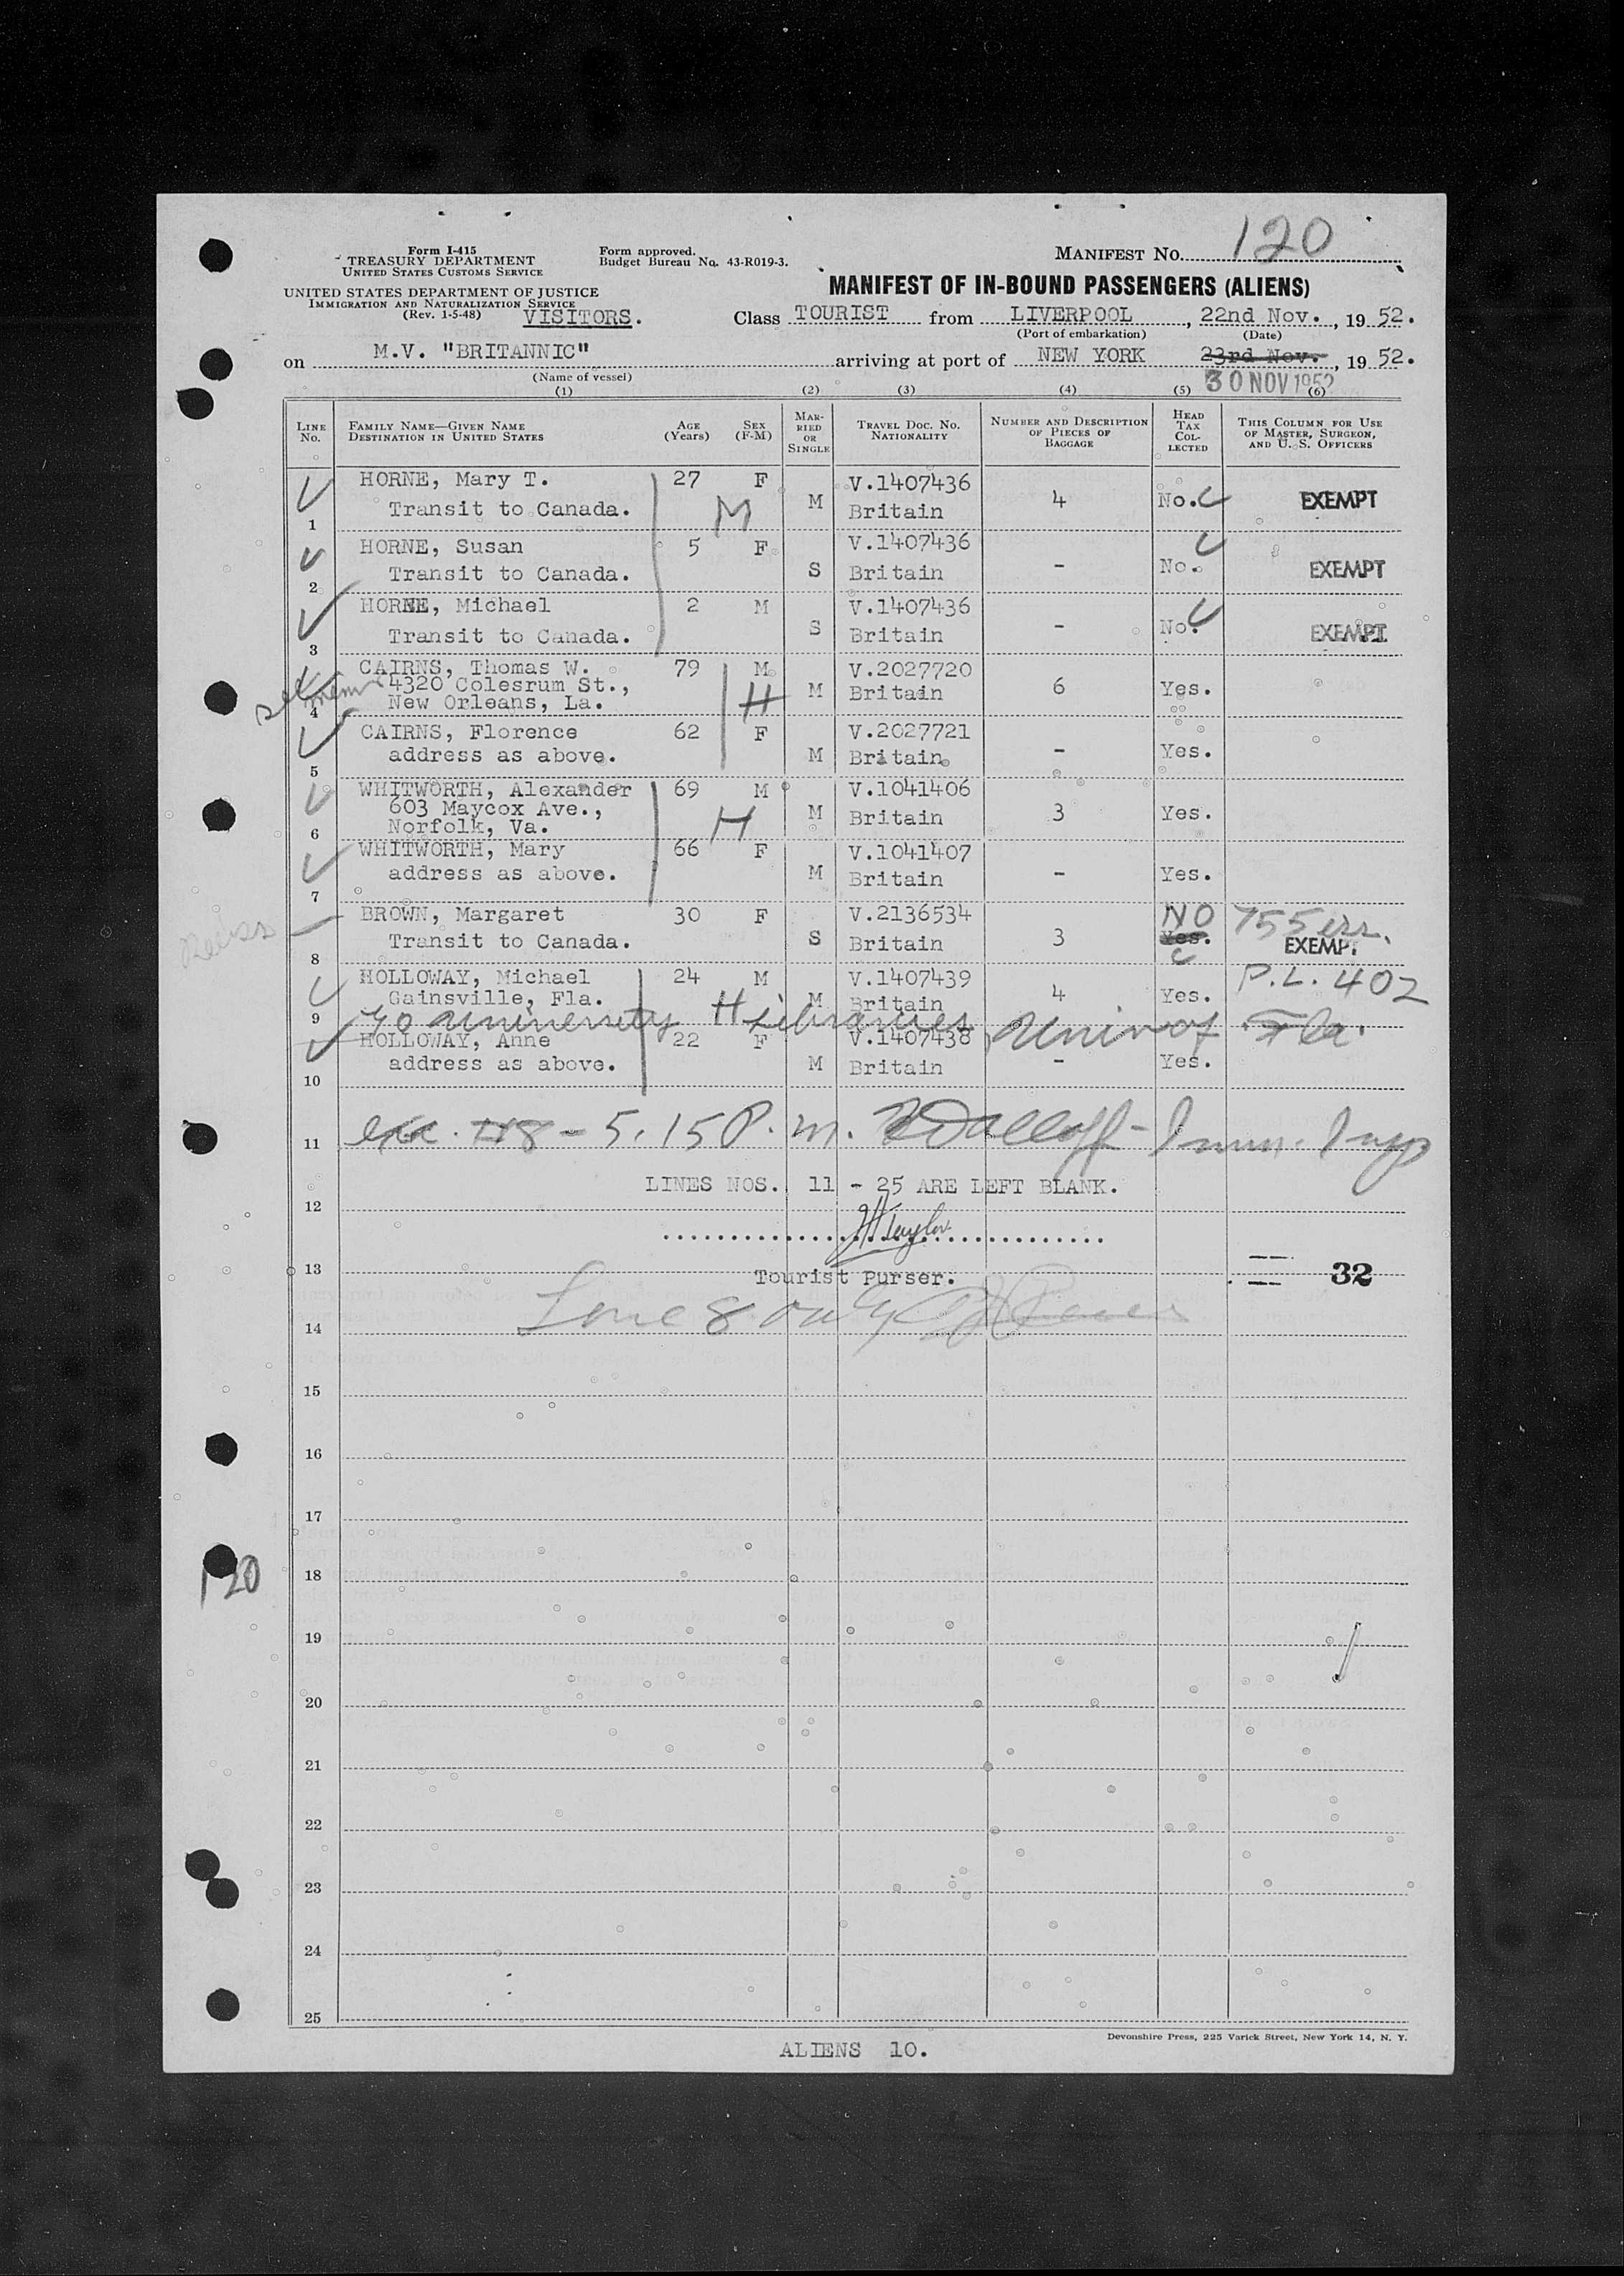 Form I-415
TREASURY DEPARTMENT
UNITED STATES CUSTOMS SERVICE
Form approved.
Budget Bureau No. 43-R019-3.
MANIFEST NO. 120
UNITED STATES DEPARTMENT OF JUSTICE
IMMIGRATION AND NATURALIZATION SERVICE
(Rev. 1-5-48) VISITORS.
MANIFEST OF IN-BOUND PASSENGERS (ALIENS)
Class TOURIST from LIVERPOOL, 22nd Nov., 19 52.
(Port of embarkation) (Date)
on M.V. "BRITANNIC" arriving at port of NEW YORK 23rd Nov., 19 52.
(Name of vessel)
30 NOV 1952
(1) (2) (3) (4) (5) (6)
LINE No. FAMILY NAME—GIVEN NAME DESTINATION IN UNITED STATES AGE (Years) SEX (F-M) MARRIED OR SINGLE TRAVEL DOC. NO. NATIONALITY NUMBER AND DESCRIPTION OF PIECES OF BAGGAGE HEAD TAX COLLECTED THIS COLUMN FOR USE OF MASTER, SURGEON, AND U. S. OFFICERS
HORNE, Mary T. 27 F V.1407436
1 Transit to Canada. M M Britain 4 No. EXEMPT
HORNE, Susan 5 F V.1407436
2 Transit to Canada. S Britain - No. EXEMPT
HORNE, Michael 2 M V.1407436
3 Transit to Canada. S Britain - No. EXEMPT
CAIRNS, Thomas W. 79 M V.2027720
4320 Colesrum St., H M Britain 6 Yes.
4 New Orleans, La.
CAIRNS, Florence 62 F V.2027721
5 address as above. M Britain - Yes.
WHITWORTH, Alexander 69 M V.1041406
603 Maycox Ave., H M Britain 3 Yes.
6 Norfolk, Va.
WHITWORTH, Mary 66 F V.1041407
7 address as above. M Britain - Yes.
BROWN, Margaret 30 F V.2136534 NO 755
8 Transit to Canada. S Britain 3 Yes. EXEMP.
HOLLOWAY, Michael 24 M V.1407439 P.L. 402
Gainsville, Fla. M Britain 4 Yes.
9 % University H Libraries Univ of Fla.
HOLLOWAY, Anne 22 F V.1407438
10 address as above. M Britain - Yes.
11 - 5.15 P.m. Imm. Insp
LINES NOS. 11 - 25 ARE LEFT BLANK.
12
13 Tourist Purser. 32
Line 8 only
14
15
16
17
120
18
19
20
21
22
23
24
25
Devonshire Press, 225 Varick Street, New York 14, N. Y.
ALIENS 10.